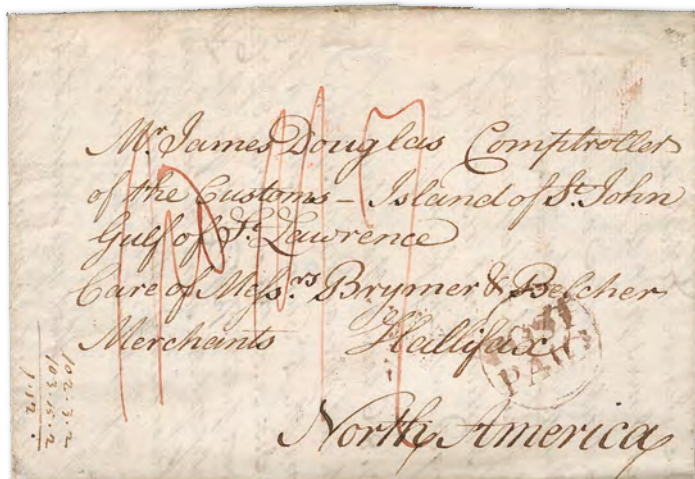 Mr. James Douglas Comptroller
of the Customs - Island of St. John
Gulf of St. Lawrence
Care of Messrs. Brymer & Belcher
Merchants Hallifax
North America
PAID
102.3.2
103.15.2
1.12.